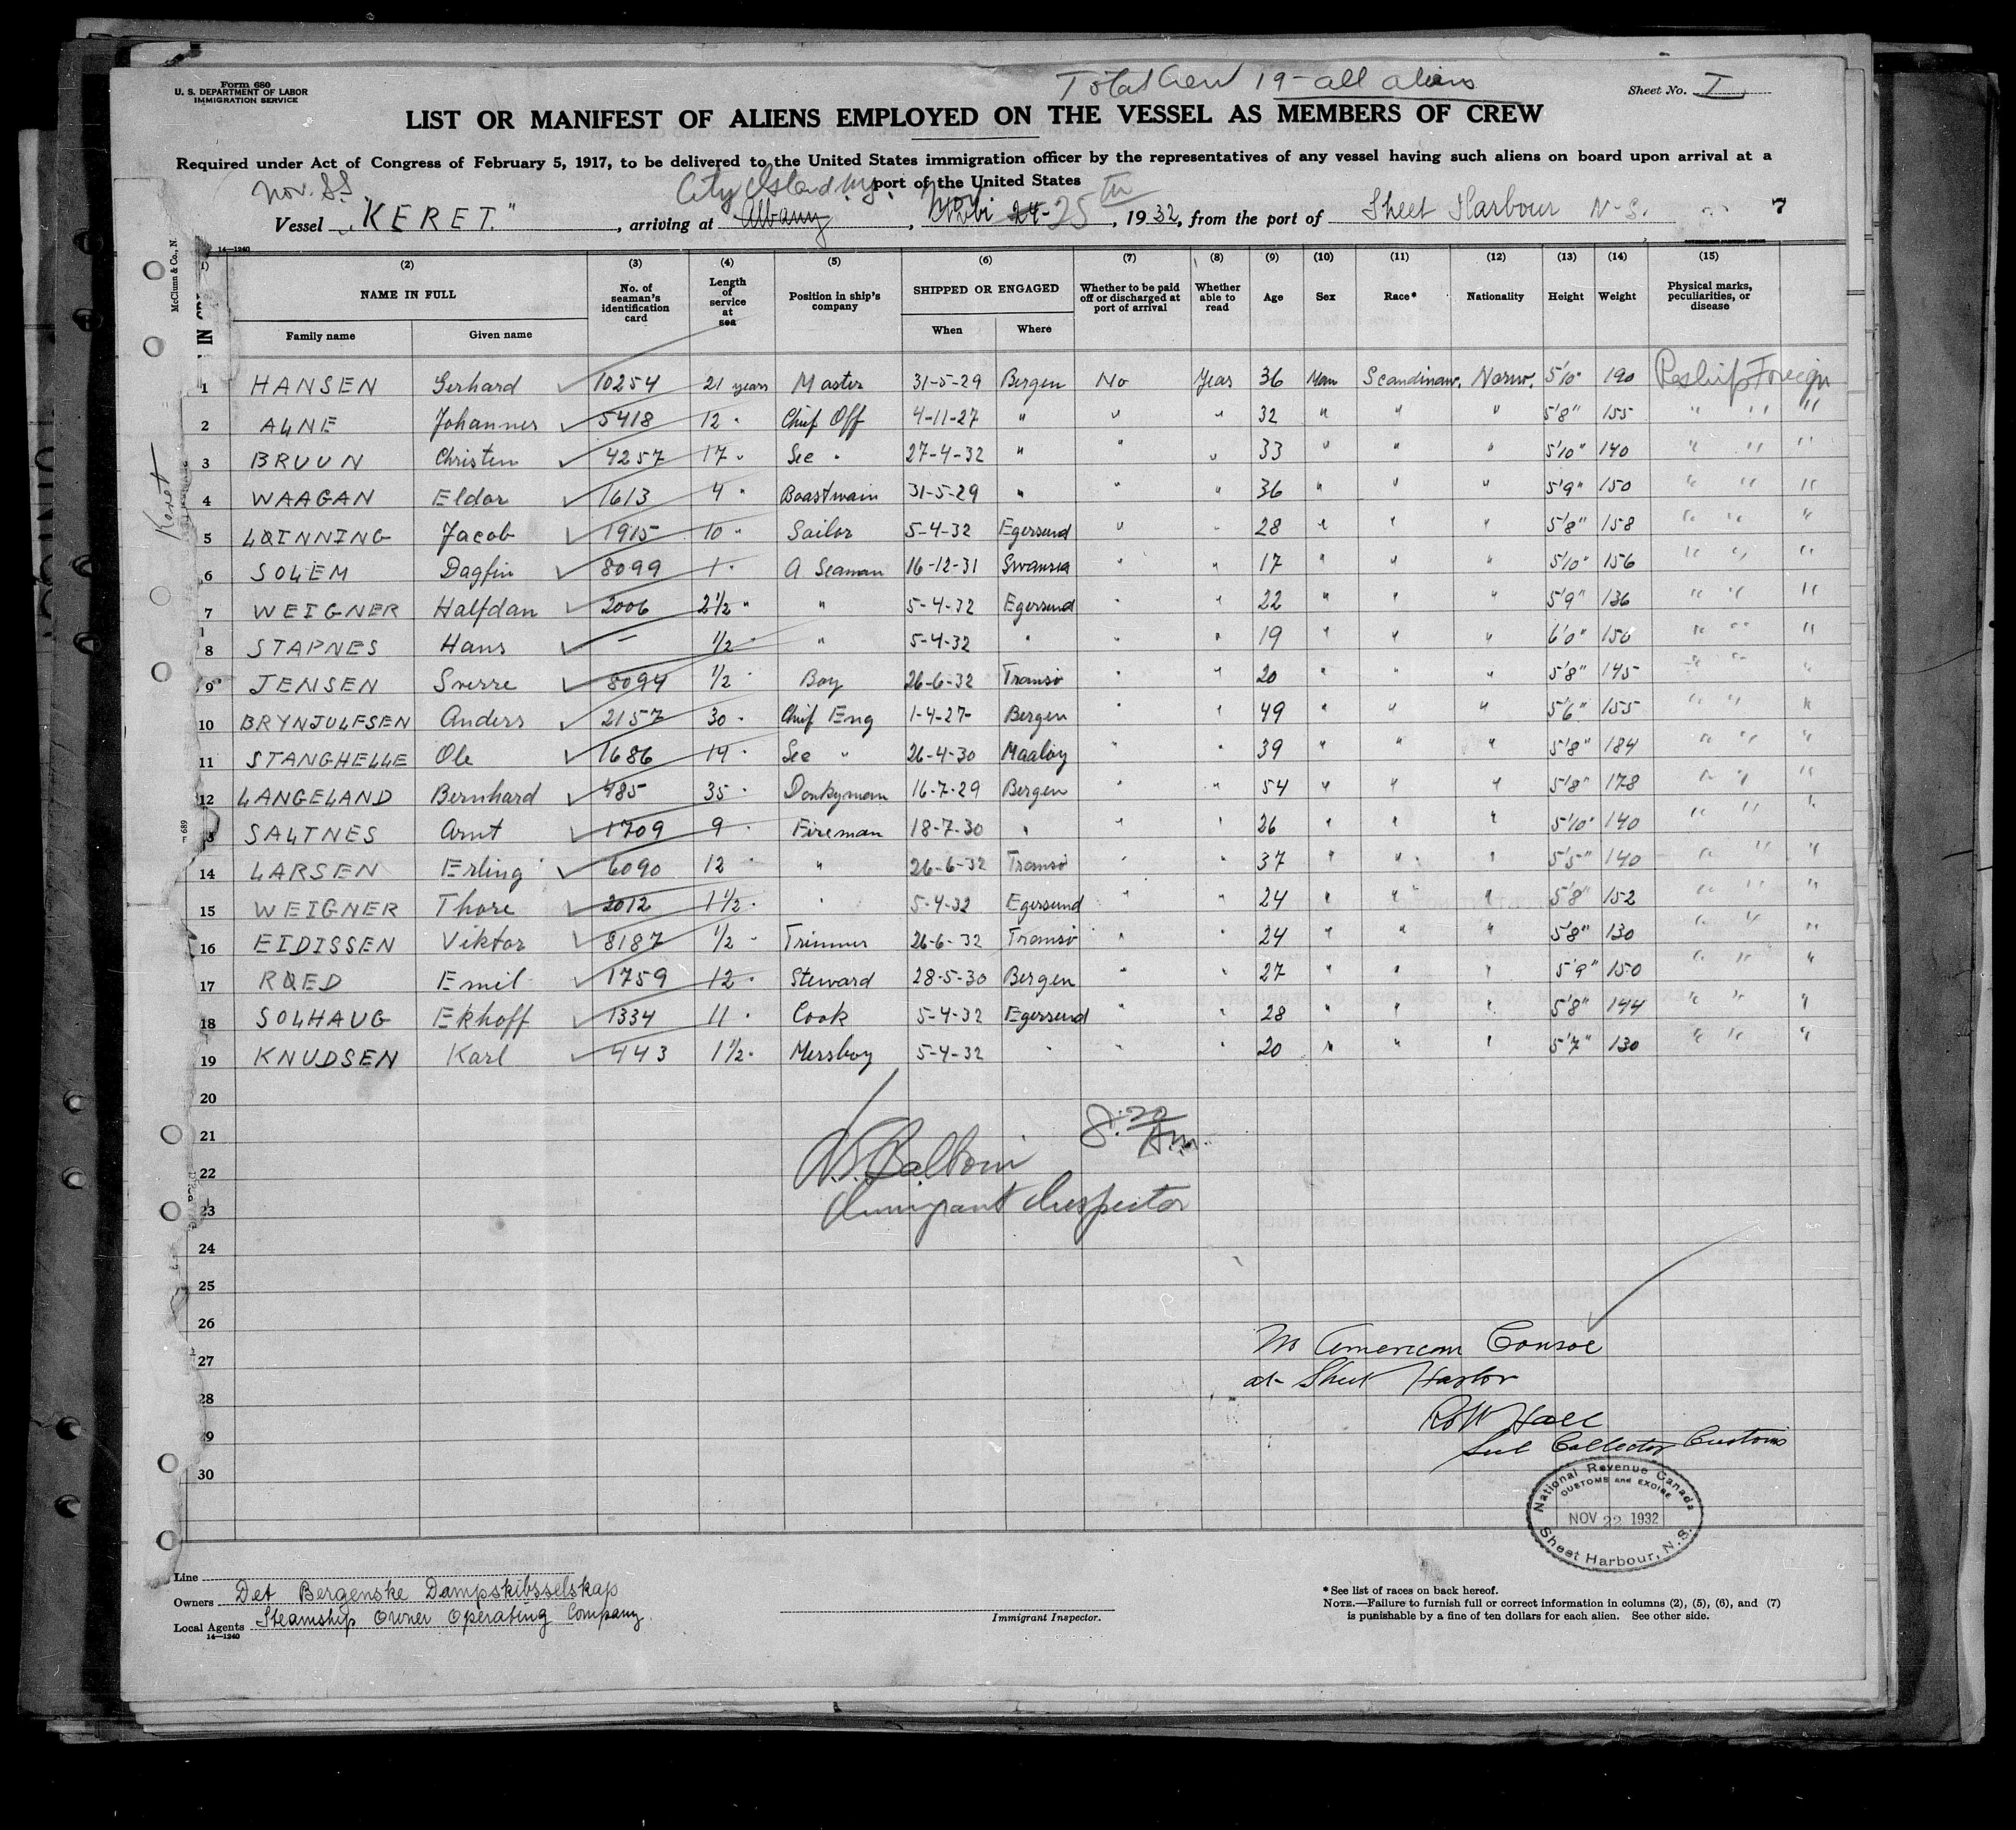 Form 680
U. S. DEPARTMENT OF LABOR
IMMIGRATION SERVICE
Total Crew 19 - all aliens
Sheet No. I
LIST OR MANIFEST OF ALIENS EMPLOYED ON THE VESSEL AS MEMBERS OF CREW
Required under Act of Congress of February 5, 1917, to be delivered to the United States immigration officer by the representatives of any vessel having such aliens on board upon arrival at a
port of the United States
Nor. SS. City Island N.Y. Nov 25th
Vessel "KERET.", arriving at Albany, 24-, 1932, from the port of Sheet Harbour N-S. 7
14—1240
McClunn & Co., N.
Keret
(2) (3) (4) (5) (6) (7) (8) (9) (10) (11) (12) (13) (14) (15)
NAME IN FULL No. of seaman's identification card Length of service at sea Position in ship's company SHIPPED OR ENGAGED Whether to be paid off or discharged at port of arrival Whether able to read Age Sex Race* Nationality Height Weight Physical marks, peculiarities, or disease
Family name Given name When Where
1 HANSEN Gerhard 10254 21 years Master 31-5-29 Bergen No Year 36 Man Scandinav. Norw. 5'10" 190 Reship Foreign
2 ALNE Johannes 5418 12 " Chief Off 4-11-27 " " " 32 " " " 5'8" 155 " " "
3 BRUUN Christen 4257 17 " Sec " 27-4-32 " " " 33 " " " 5'10" 140 " " "
4 WAAGAN Eldor 1613 4 " Boastwain 31-5-29 " " " 36 " " " 5'9" 150 " " "
5 LØINNING Jacob 1915 10 " Sailor 5-4-32 Egersund " " 28 " " " 5'8" 158 " " "
6 SOLEM Dagfin 8099 1 " A Seaman 16-12-31 Swansea " " 17 " " " 5'10" 156 " " "
7 WEIGNER Halfdan 2006 2½ " " 5-4-32 Egersund " " 22 " " " 5'9" 136 " " "
8 STAPNES Hans — ½ " " 5-4-32 " " " 19 " " " 6'0" 150 " " "
9 JENSEN Sverre 8094 ½ " Boy 26-6-32 Tromsø " " 20 " " " 5'8" 145 " " "
10 BRYNJULFSEN Anders 2157 30 " Chief Eng 1-4-27- Bergen " " 49 " " " 5'6" 155 " " "
11 STANGHELLE Ole 1686 19 " Sec " 26-4-30 Maaløy " " 39 " " " 5'8" 184 " " "
12 LANGELAND Bernhard 985 35 " Donkyman 16-7-29 Bergen " " 54 " " " 5'8" 178 " " "
3 SALTNES Arnt 1709 9 " Fireman 18-7-30 " " " 26 " " " 5'10" 140 " " "
14 LARSEN Erling 6090 12 " " 26-6-32 Tromsø " " 37 " " " 5'5" 140 " " "
15 WEIGNER Thore 2012 1½ " " 5-4-32 Egersund " " 24 " " " 5'8" 152 " " "
16 EIDISSEN Viktor 8187 ½ " Trimmer 26-6-32 Tromsø " " 24 " " " 5'8" 130 " " "
17 RØED Emil 1759 12 " Steward 28-5-30 Bergen " " 27 " " " 5'9" 150 " " "
18 SOLHAUG Ekhoff 1334 11 " Cook 5-4-32 Egersund " " 28 " " " 5'8" 144 " " "
19 KNUDSEN Karl 443 1½ " Messboy 5-4-32 " " " 20 " " " 5'7" 130 " " "
20
21
22
23
24
25
26
27
28
29
30
8:30 A.m.
Baldwin
Immigrant Inspector
No American Consoe
at Sheet Harbor
Hall
Sub Collector Customs
National Revenue Canada
CUSTOMS and EXCISE
NOV 22 1932
Sheet Harbour, N.S.
Line
Owners Det Bergenske Dampskibsselskap
Local Agents Steamship Owner Operating Company.
14—1240
Immigrant Inspector.
*See list of races on back hereof.
NOTE.—Failure to furnish full or correct information in columns (2), (5), (6), and (7)
is punishable by a fine of ten dollars for each alien. See other side.